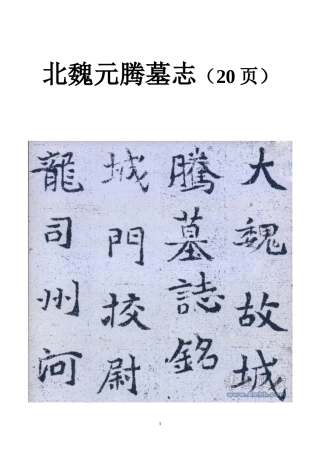 北魏元腾墓志（20 页）
大魏故城
騰墓誌銘
城門挍尉
龍司州河
1